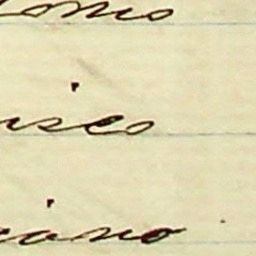 tonio
isco
ciano